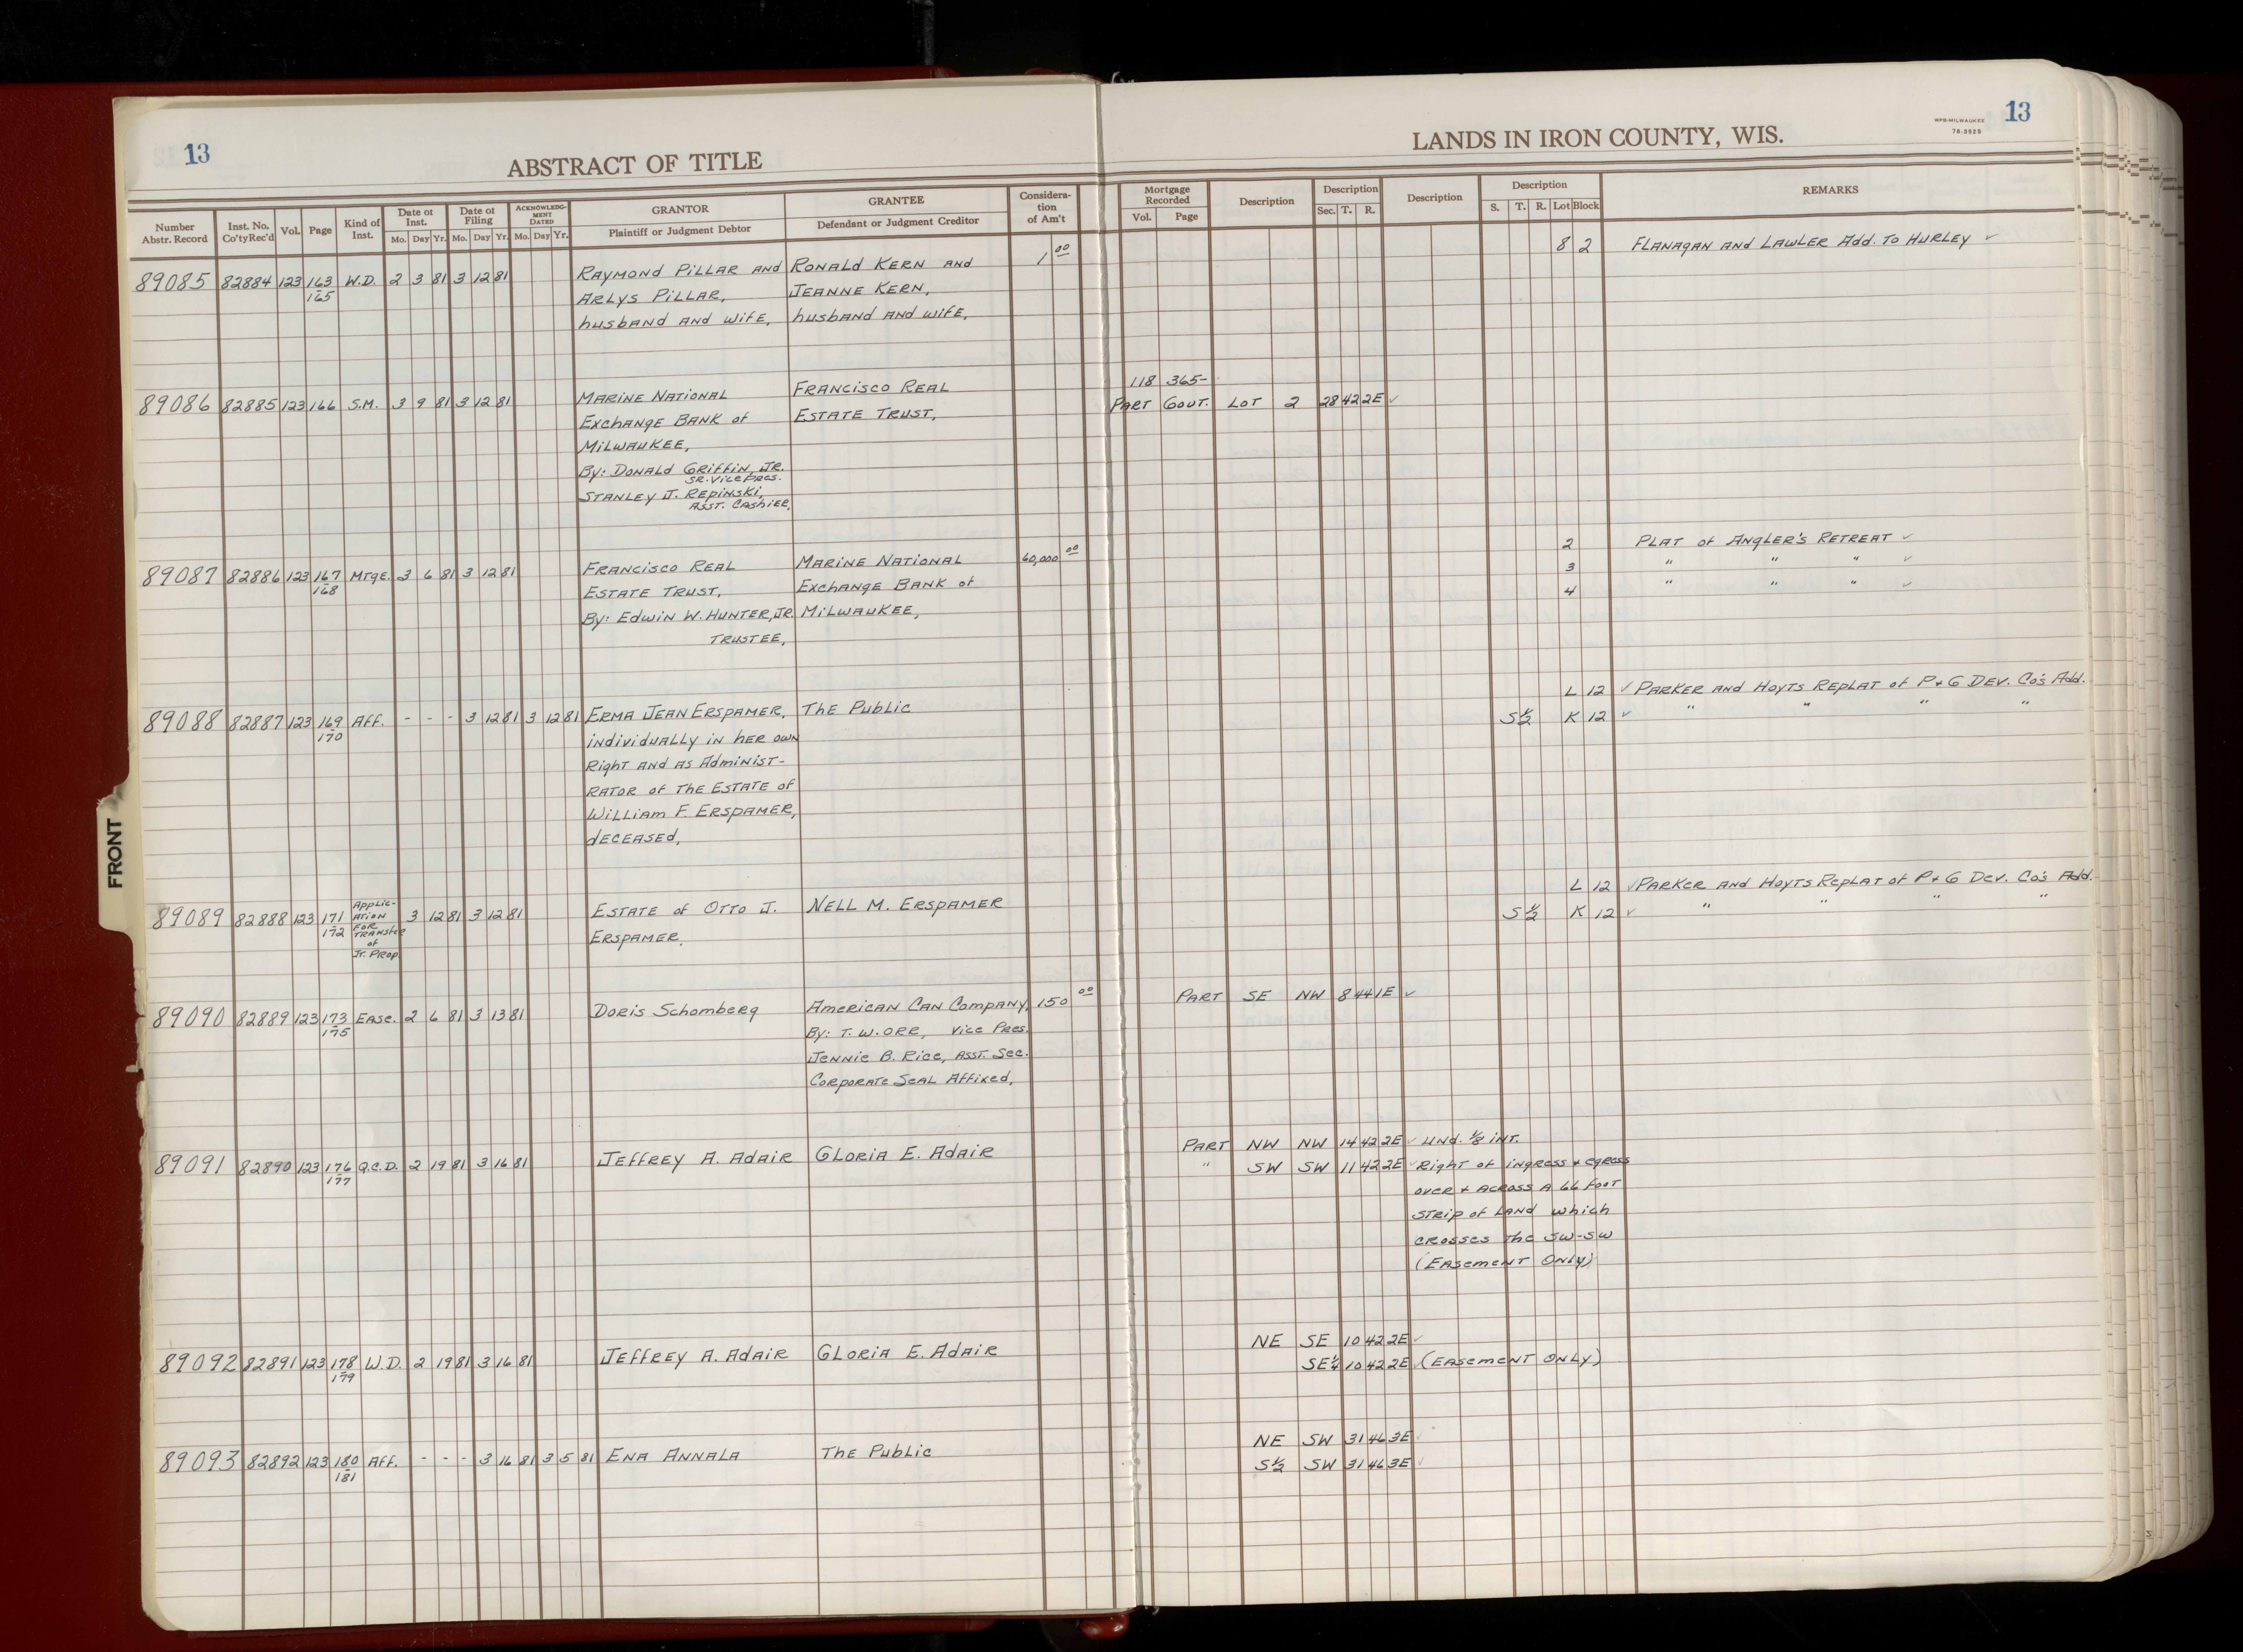 13
ABSTRACT OF TITLE
LANDS IN IRON COUNTY, WIS.
WPB-MILWAUKEE
78-3525
13
Number Abstr. Record | Inst. No. Co'ty Rec'd | Vol. | Page | Kind of Inst. | Date of Inst. Mo. Day Yr. | Date of Filing Mo. Day Yr. | ACKNOWLEDGMENT DATED Mo. Day Yr. | GRANTOR Plaintiff or Judgment Debtor | GRANTEE Defendant or Judgment Creditor | Consideration of Am't | Mortgage Recorded Vol. Page | Description | Description Sec. T. R. | Description | Description S. T. R. Lot Block | REMARKS
89085 82884 123 163 W.D. 2 3 81 3 12 81 Raymond Pillar and Ronald Kern and 1 00 8 2 Flanagan and Lawler Add. To Hurley ✓
165 Arlys Pillar, Jeanne Kern,
husband and wife, husband and wife,
118 365-
89086 82885 123 166 S.M. 3 9 81 3 12 81 Marine National Francisco Real Part Gout. Lot 2 28 42 2E ✓
Exchange Bank of Estate Trust,
Milwaukee,
By: Donald Griffin, Jr.
Sr. Vice Pres.
Stanley J. Repinski,
Asst. Cashier,
89087 82886 123 167 Mtge. 3 6 81 3 12 81 Francisco Real Marine National 60,000 00 2 Plat of Angler's Retreat ✓
168 Estate Trust, Exchange Bank of 3 " " " ✓
By: Edwin W. Hunter, Jr. Milwaukee, 4 " " " ✓
Trustee,
L 12 ✓ Parker and Hoyts Replat of P + G Dev. Co's Add.
89088 82887 123 169 Aff. - - - 3 12 81 3 12 81 Erma Jean Erspamer, The Public S½ K 12 ✓ " " " "
170 individually in her own
Right and as Administ-
rator of the Estate of
William F. Erspamer,
deceased,
L 12 ✓ Parker and Hoyts Replat of P + G Dev. Co's Add.
89089 82888 123 171 Applic- 3 12 81 3 12 81 Estate of Otto J. Nell M. Erspamer S½ K 12 ✓ " " " "
172 ation Erspamer,
for
Transfer
of
Jt. Prop.
89090 82889 123 173 Ease. 2 6 81 3 13 81 Doris Schomberg American Can Company, 150 00 Part SE NW 8 44 1E ✓
175 By: T. W. Orr, Vice Pres.
Jennie B. Rice, Asst. Sec.
Corporate Seal Affixed,
89091 82890 123 176 Q.C.D. 2 19 81 3 16 81 Jeffrey A. Adair Gloria E. Adair Part NW NW 14 42 2E ✓ Und. 1/8 int.
177 " SW SW 11 42 2E ✓ Right of ingress + egress
over + across a 66 foot
strip of land which
crosses the SW-SW
(Easement Only)
89092 82891 123 178 W.D. 2 19 81 3 16 81 Jeffrey A. Adair Gloria E. Adair NE SE 10 42 2E ✓
179 SE¼ 10 42 2E ✓ (Easement Only)
89093 82892 123 180 Aff. - - - 3 16 81 3 5 81 Ena Annala The Public NE SW 31 46 3E ✓
181 S½ SW 31 46 3E ✓
FRONT